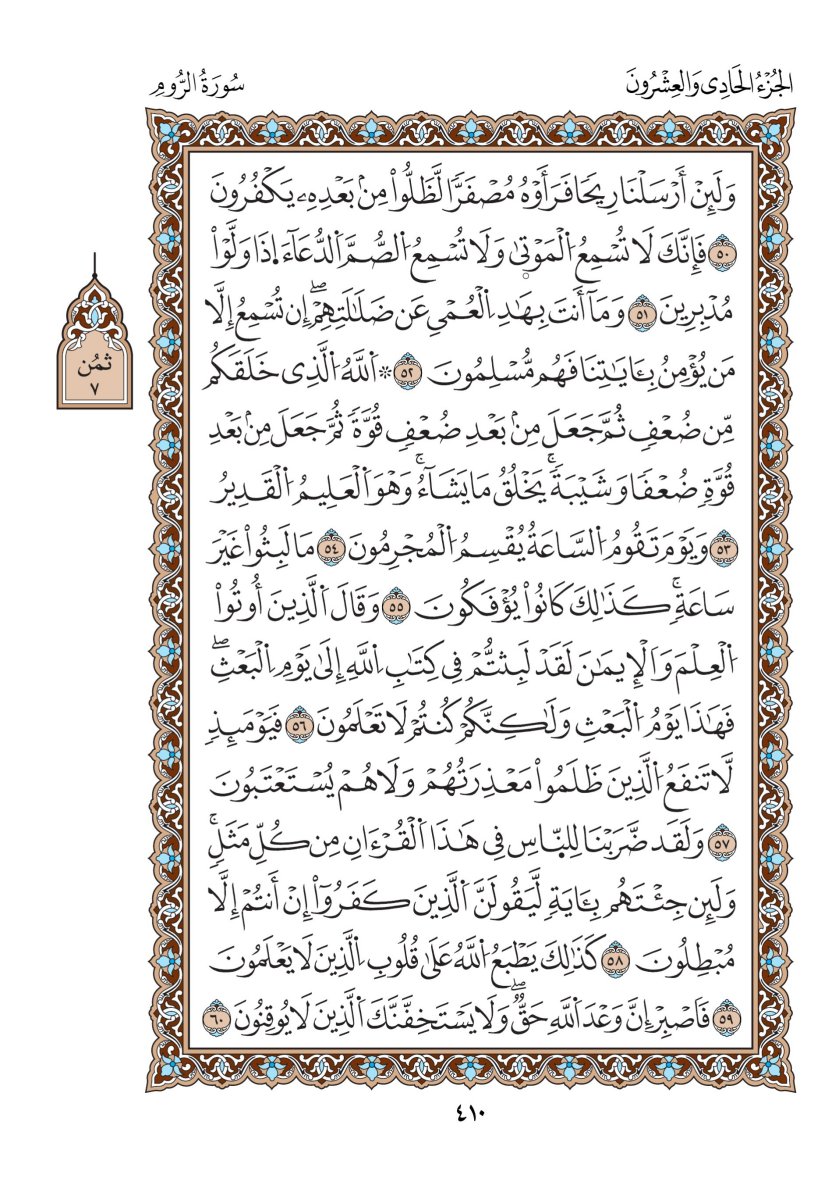 الجُزْءُ الحَادِي وَالعِشْرُونَ
سُورَةُ الرُّومِ
وَلَئِنْ أَرْسَلْنَا رِيحًا فَرَأَوْهُ مُصْفَرًّا لَّظَلُّواْ مِنۢ بَعْدِهِۦ يَكْفُرُونَ
٥٠ فَإِنَّكَ لَا تُسْمِعُ الْمَوْتٜىٰ وَلَا تُسْمِعُ الصُّمَّ الدُّعَآءَ اِ۬ذَا وَلَّوْاْ
مُدْبِرِينَ ٥١ وَمَآ أَنتَ بِهَٰدِ اِلْعُمْيِ عَن ضَلَٰلَتِهِمْۖ إِن تُسْمِعُ إِلَّا
مَن يُؤْمِنُ بِـَٔايَٰتِنَا فَهُم مُّسْلِمُونَ ٥٢ ۞ اَللَّهُ الَّذِي خَلَقَكُم
مِّن ضُعْفٖ ثُمَّ جَعَلَ مِنۢ بَعْدِ ضُعْفٖ قُوَّةٗ ثُمَّ جَعَلَ مِنۢ بَعْدِ
قُوَّةٖ ضُعْفٗا وَشَيْبَةٗۚ يَخْلُقُ مَا يَشَآءُۚ وَهْوَ اَلْعَلِيمُ الْقَدِيرُ
٥٣ وَيَوْمَ تَقُومُ السَّاعَةُ يُقْسِمُ الْمُجْرِمُونَ ٥٤ مَا لَبِثُواْ غَيْرَ
سَاعَةٖۚ كَذَٰلِكَ كَانُواْ يُؤْفَكُونَ ٥٥ وَقَالَ اَلَّذِينَ أُوتُواْ
اُلْعِلْمَ وَالْإِيمَٰنَ لَقَدْ لَبِثتُّمْ فِي كِتَٰبِ اِللَّهِ إِلَىٰ يَوْمِ اِلْبَعْثِۖ
فَهَٰذَا يَوْمُ الْبَعْثِ وَلَٰكِنَّكُمْ كُنتُمْ لَا تَعْلَمُونَ ٥٦ فَيَوْمَئِذٖ
لَّا تَنفَعُ الَّذِينَ ظَلَمُواْ مَعْذِرَتُهُمْ وَلَا هُمْ يُسْتَعْتَبُونَ
٥٧ وَلَقَد ضَّرَبْنَا لِلنَّاسِ فِي هَٰذَا اَلْقُرْءَانِ مِن كُلِّ مَثَلٖۚ
وَلَئِن جِئْتَهُم بِـَٔايَةٖ لَّيَقُولَنَّ اَلَّذِينَ كَفَرُوٓاْ إِنْ أَنتُمْ إِلَّا
مُبْطِلُونَ ٥٨ كَذَٰلِكَ يَطْبَعُ اللَّهُ عَلَىٰ قُلُوبِ اِلَّذِينَ لَا يَعْلَمُونَ
٥٩ فَاصْبِرْ إِنَّ وَعْدَ اَللَّهِ حَقّٞۖ وَلَا يَسْتَخِفَّنَّكَ اَلَّذِينَ لَا يُوقِنُونَ ٦٠
ثمُن
٧
٤١٠